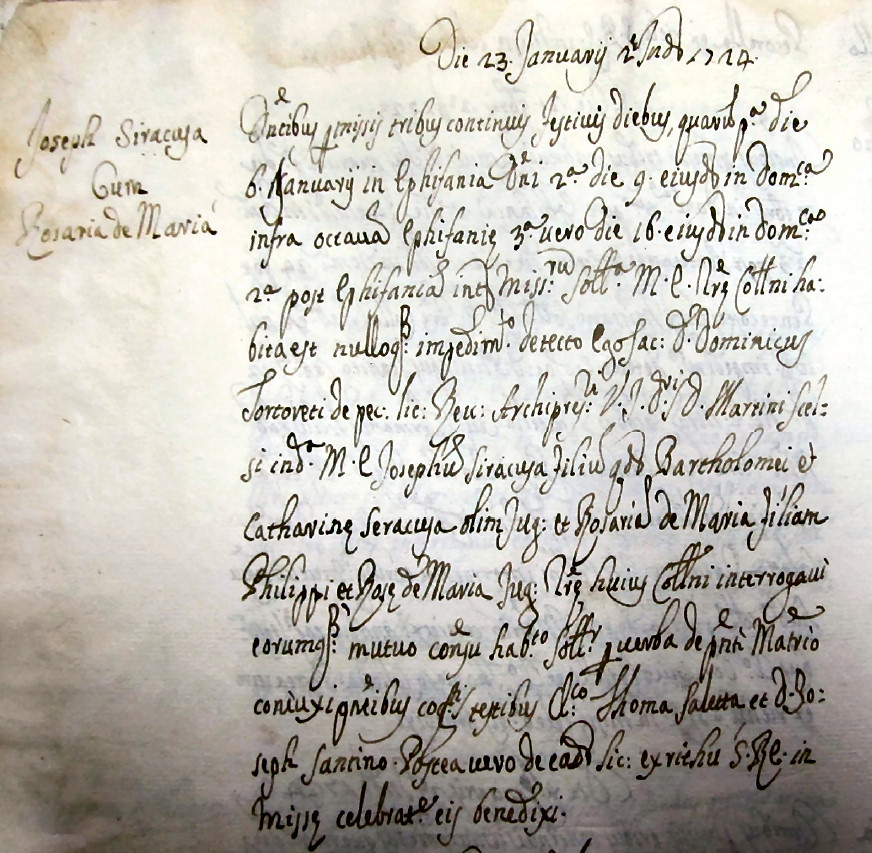 Die 23 Januarij 2e Indis 1724
Joseph Siracusa
Cum
Rosaria de Maria
Dntibus pmissis tribus continuis festivis diebus, quarum pa die
6. Januarij in Ephifania Dni 2a die 9. eiusd in Domca
infra occava Ephifanie 3a vero die 16. eiusd in domca
2a post Ephifania int Missru soll. M. E. Nre Collni ha:
bita est nulloq: impedimto detecto Ego Sac: D. Dominicus
Tortoreti de pec: lic: Reu: Archipresri V. J. Dris D. Martini Scel:
si inda M. E Josephu Siracusa filiu qd Bartholomei et
Catharine Seracusa olim Jug: et Rosaria de Maria filiam
Philippi et Rose de Maria Jug: Nre huius Collni interrogavi
eorumq: mutuo consu habto sollr p verba de pnti Matrio
coniuxi pntibus cogtis testibus Clco Thoma Saletta et D. Jo:
seph Santino. Postea vero de ead lic: ex rithu S. R. E. in
Misse celebrate eis benedixi.